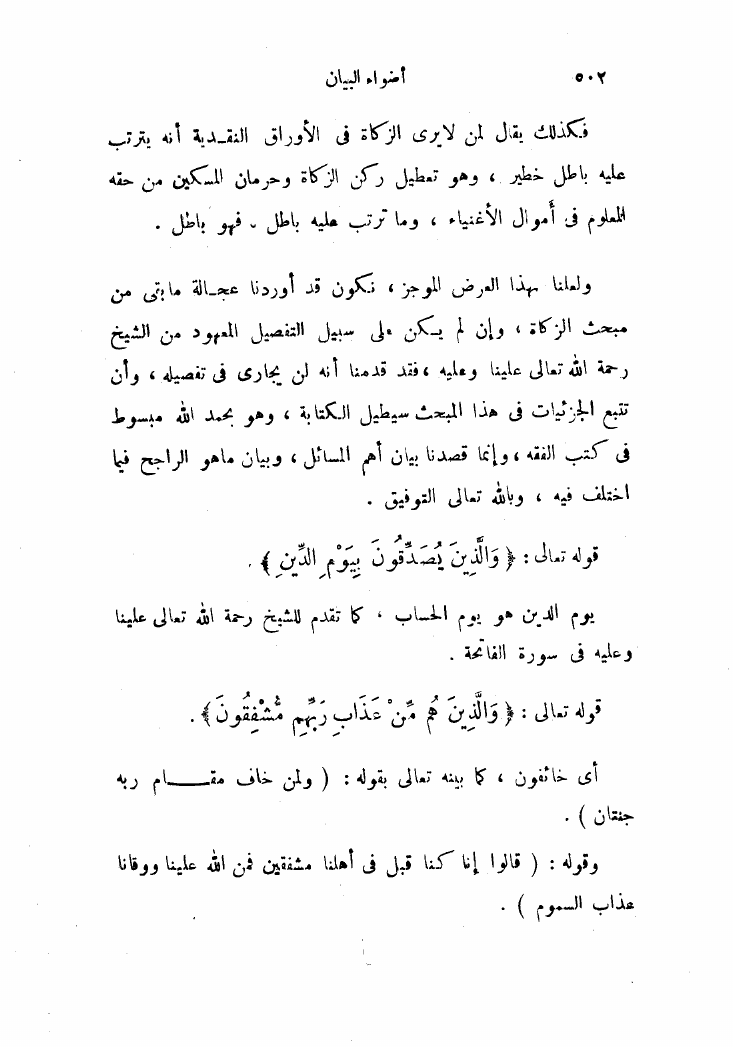 ٥٠٢ أضواء البيان
فكذلك يقال لمن لايرى الزكاة فى الأوراق النقدية أنه يترتب
عليه باطل خطير ، وهو تعطيل ركن الزكاة وحرمان المسكين من حقه
المعلوم فى أموال الأغنياء ، وما ترتب عليه باطل ـ فهو باطل .
ولعلنا بهذا العرض الموجز ، نكون قد أوردنا عجالة ما بقى من
مبحث الزكاة ، وإن لم يكن على سبيل التفصيل المعهود من الشيخ
رحمة الله تعالى علينا وعليه ، فقد قدمنا أنه لن يجارى فى تفصيله ، وأن
تتبع الجزئيات فى هذا المبحث سيطيل الكتابة ، وهو بحمد الله مبسوط
فى كتب الفقه ، وإنما قصدنا بيان أهم المسائل ، وبيان ماهو الراجح فيما
اختلف فيه ، وبالله تعالى التوفيق .
قوله تعالى : ﴿ وَالَّذِينَ يُصَدِّقُونَ بِيَوْمِ الدِّينِ ﴾ .
يوم الدين هو يوم الحساب ، كما تقدم للشيخ رحمة الله تعالى علينا
وعليه فى سورة الفاتحة .
قوله تعالى : ﴿ وَالَّذِينَ هُم مِّنْ عَذَابِ رَبِّهِم مُّشْفِقُونَ ﴾ .
أى خائفون ، كما بينه تعالى بقوله : ( ولمن خاف مقـــام ربه
جنتان ) .
وقوله : ( قالوا إنا كنا قبل فى أهلنا مشفقين فمن الله علينا ووقانا
عذاب السموم ) .